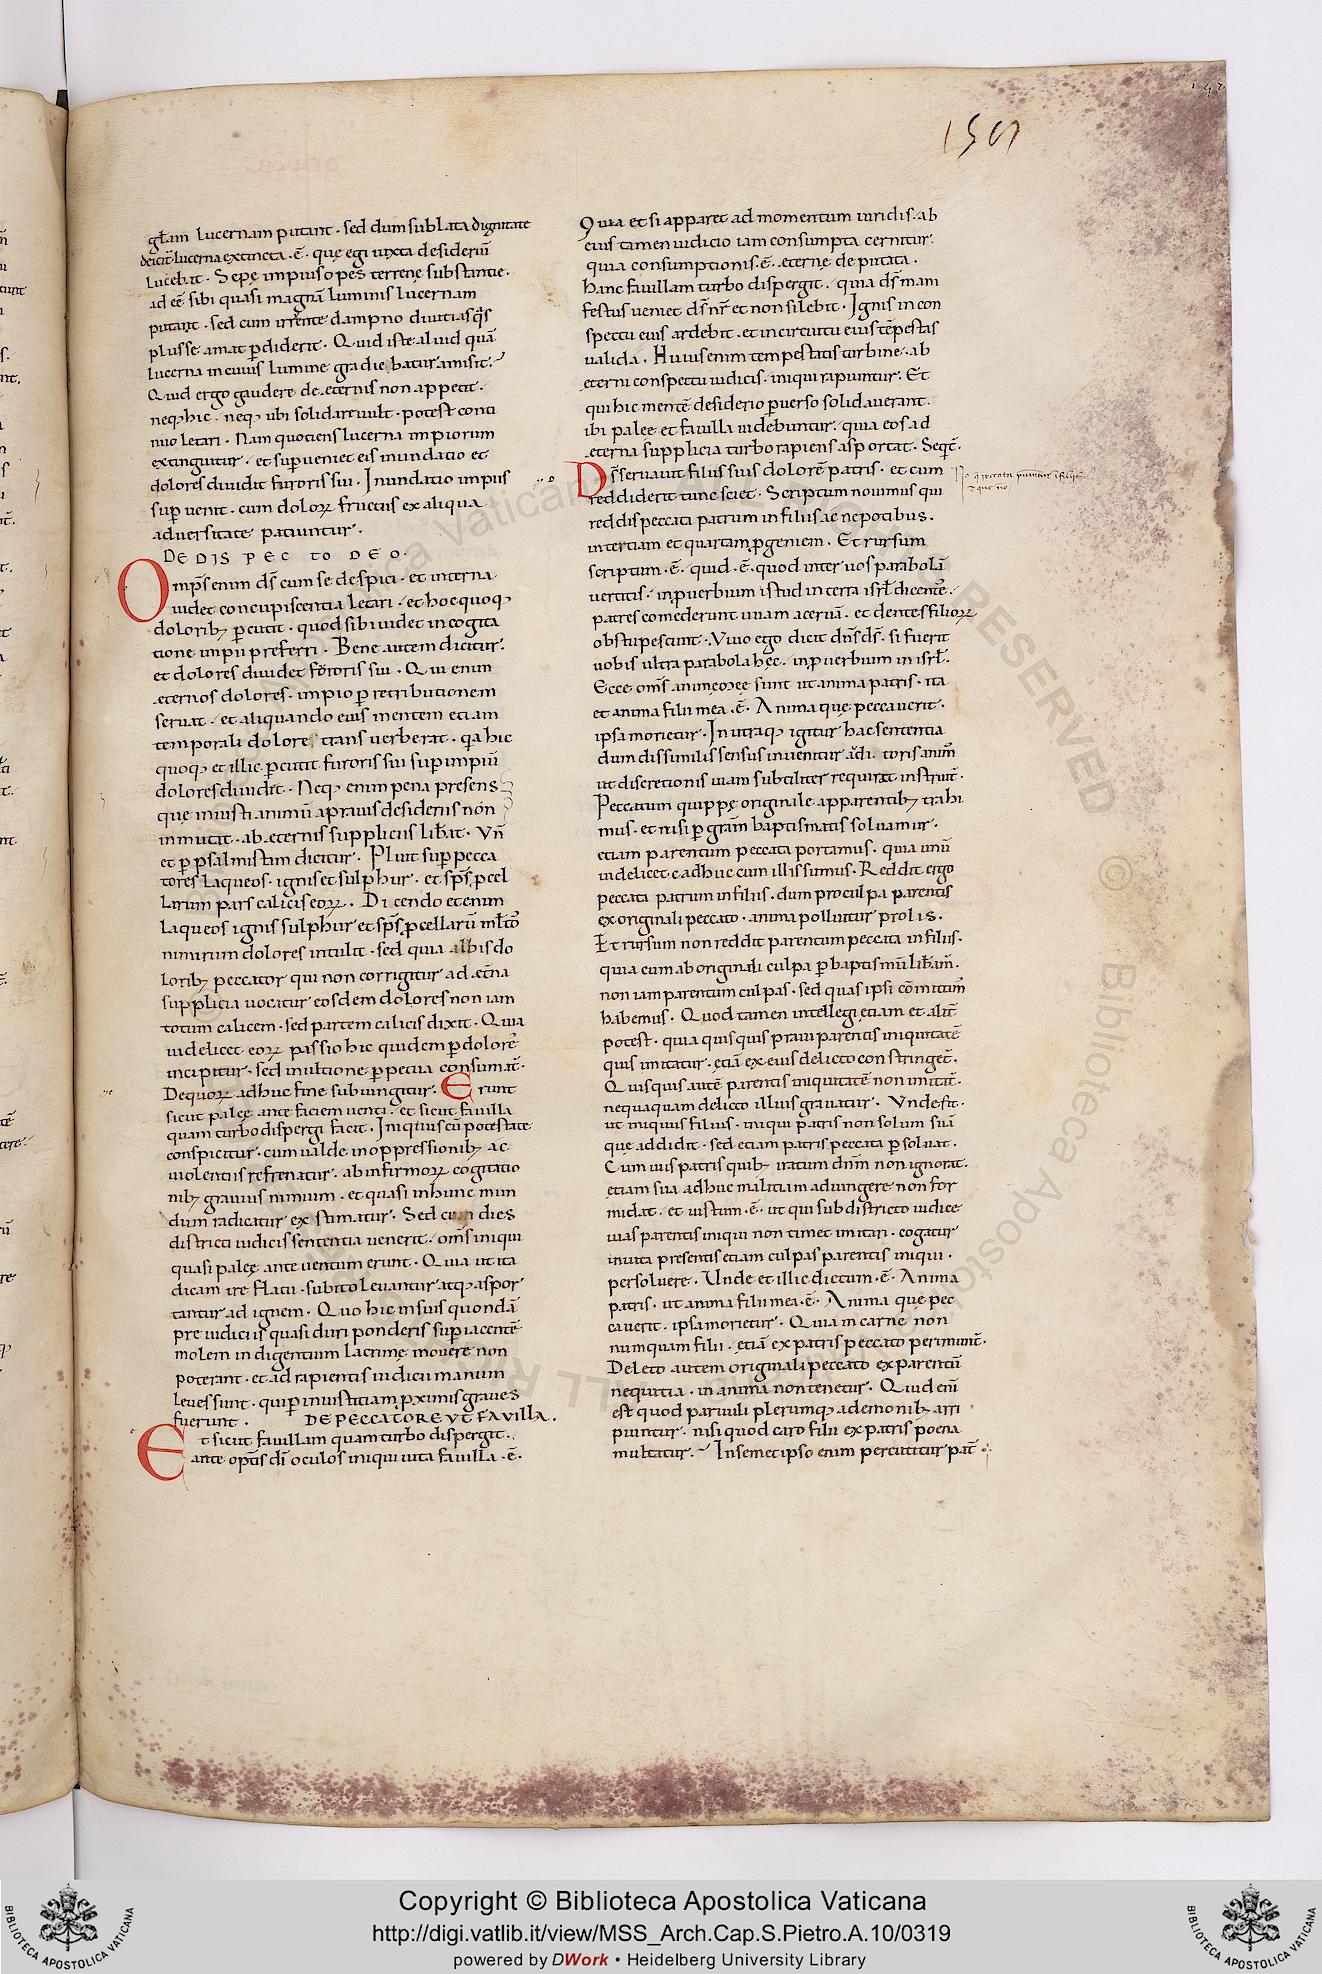 1501
gl̄am lucernam putant · sed dum sublata dignitate
deicit̄ lucerna extincta · ē · quę egi iuxta desideriū
lucebat · Sepę impius opes terrenę substantie ·
ad eē sibi quasi magnā luminis lucernam
putant · sed cum irrente dampno diuitias qͥs
plusse amat ꝑdiderit · Quid iste aliud quā
lucerna in cuius lumine gradiebatur amisit ·
Quid ergo gaudere de ęternis non appetit ·
neqꝫ hic · neqꝫ ubi solidari uult · potest conti
nuo letari · Nam quotiens lucerna impiorum
extinguitur · et suꝑueniet eis inundatio et
dolores diuidit furoris sui · Inundatio impiis
suꝑ uenit · cum doloꝝ fluctus ex aliqua
aduersitate patiuntur ·
DE DIS PEC TO DEO ·
Omps̄ enim ds̄ cum se despici · et interna
uidet concupiscentia letari · et hoc quoqꝫ
doloribꝫ ꝑcutit · quod sibi uidet in cogita
tione impii preferri · Bene autem dicitur ·
et dolores diuidet furoris sui · Qui enim
ęternos dolores · impio ꝑ retributionem
seruat · et aliquando eius mentem etiam
temporali dolore trans uerberat · qͣa hic
quoqꝫ et illic ꝑcutit furoris sui suꝑ impiū
dolores diuidet · Neqꝫ enim pena presens
quę iniusti animū a prauis desideriis non
inmutat · ab ęternis suppliciis libat · Vn̄
et ꝑ psalmistam dicitur · Pluit suꝑ pecca
tores laqueos · ignis et sulphur · et sps̄ ꝓcel
larum pars calicis eoꝝ · Dicendo etenim
laqueos ignis sulphur et sps̄ ꝓcellarū ml̄tos
nimirum dolores intulit · sed quia ab his do
loribꝫ peccator qui non corrigitur ad et̄na
supplicia uocatur eosdem dolores non iam
totum calicem · sed partem calicis dixit · Quia
uidelicet eoꝝ passio hic quidem ꝑ dolorē
incipitur · sed in ultione ꝑpetua consumat̄ ·
De quoꝝ adhuc fine subiungitur · Erunt
sicut paleę ante faciem uenti · et sicut fauilla
quam turbo dispergi facit · Iniquus cū potestate
conspicitur · cum ualde in oppressionibꝫ ac
uiolentiis refrenatur · ab infirmoꝝ cogitatio
nibꝫ grauius nimium · et quasi in hunc mun
dum radicatur ex stimatur · Sed cum dies
districti iudicis sententia uenerit · oms̄ iniqui
quasi paleę ante uentum erunt · Quia ut ita
dicam ire flatu · subito leuantur atqꝫ aspor
tantur ad ignem · Quo hic in suis quondā
pre iudiciis quasi duri ponderis suꝑiacente
molem indigentium lacrimę mouere non
poterant · et ad rapientis iudicii manum
leues sunt · qui ꝑ iniustitiam ꝓximis graues
fuerunt · DE PECCATORE VT FAVILLA ·
Et sicut fauillam quam turbo dispergit ·
ante opt̄is dī oculos iniqui uita fauilla · ē ·
Quia et si apparet ad momentum uiridis · ab
eius tamen iudicio iam consumpta cernitur ·
quia consumptionis · ē · ęternę deputata ·
hanc fauillam turbo dispergit · quia ds̄ mani
festus ueniet ds̄ nr̄ et non silebit · Ignis in con
spectu eius ardebit · et in circuitu eius tēpestas
ualida · Huius enim tempestatis turbine · ab
ęterni conspectu iudicis · iniqui rapiuntur · Et
qui hic mentē desiderio ꝑuerso solidauerant ·
ibi palee et fauilla uidebuntur · quia eos ad
ęterna supplicia turbo rapiens asportat · Seqt̄ ·
Ds̄ seruauit filiis suis dolorē patris · et cum
reddiderit tunc sciet · Scriptum nouimus qui
reddis peccati patrum in filiis ac nepotibus ·
in tertiam et quartam ꝓgeniem · Et rursum
scriptum · ē · quid · ē · quod inter uos parabolā
uertitis · in ꝓuerbium istud in terra isrl̄ dicente ·
patres comederunt uuam aceruā · et dentes filioꝝ
obstupescunt · Viuo ego dicit dn̄s ds̄ · si fuerit
uobis ultra parabola hęc · in ꝓuerbium in isrl̄ ·
Ecce oms̄ animę meę sunt ut anima patris · ita
et anima filii mea · ē · Anima quę peccauerit ·
ipsa morietur · In utraqꝫ igitur hac sententia
dum dissimilis sensus inuenitur adi toris anim̄
ut discretionis uiam subtiliter requirat instruit̄ ·
Peccatum quippę originale apparentibꝫ trahi
mus · et nisi ꝑ gram̄ baptismatis soluamur ·
etiam parentum peccata portamus · quia unū
uidelicet adhuc cum illis sumus · Reddit ergo
peccata patrum in filiis · dum pro culpa parentis
ex originali peccato · anima polluitur prolis ·
Et rursum non reddit parentum peccata in filiis ·
quia cum ab originali culpa ꝑ baptismū libam̄ ·
non iam parentum culpas · sed quas ipsi cōmitim̄
habemus · Quod tamen intellegi etiam et alit̄
potest · quia quisquis praui parentis iniquitatē
quis imitatur · etiā ex eius delicto constringet̄ ·
Quisquis autē parentis iniquitatē non imitat̄ ·
nequaquam delicto illius grauatur · Vnde fit ·
ut iniquus filius · iniqui patris non solum suā
que addidit · sed etiam patris peccata ꝑsoluat ·
Cum uiis patris quibꝫ iratum dn̄m non ignorat ·
etiam sua adhuc malitiam adiungere non for
midat · et iustum · ē · ut qui sub districto iudice
uias parentis iniqui non timet imitari · cogatur
inuita presenti etiam culpas parentis iniqui ·
persoluere · Unde et illic dictum · ē · Anima
patris · ut anima filii mea · ē · Anima que pec
cauerit · ipsa morietur · Quia in carne non
numquam filii · etiā ex patris peccato perimunt̄ ·
Deleto autem originali peccato ex parentū
nequitia · in anima non tenetur · Quid eni
est quod paruuli plerumqꝫ a demonibꝫ arri
piuntur · nisi quod caro filii ex patris poena
multatur · Insemet ipso enim percutitur pat̄
Copyright © Biblioteca Apostolica Vaticana
http://digi.vatlib.it/view/MSS_Arch.Cap.S.Pietro.A.10/0319
powered by DWork • Heidelberg University Library
BIBLIOTECA APOSTOLICA VATICANA
BIBLIOTECA APOSTOLICA VATICANA